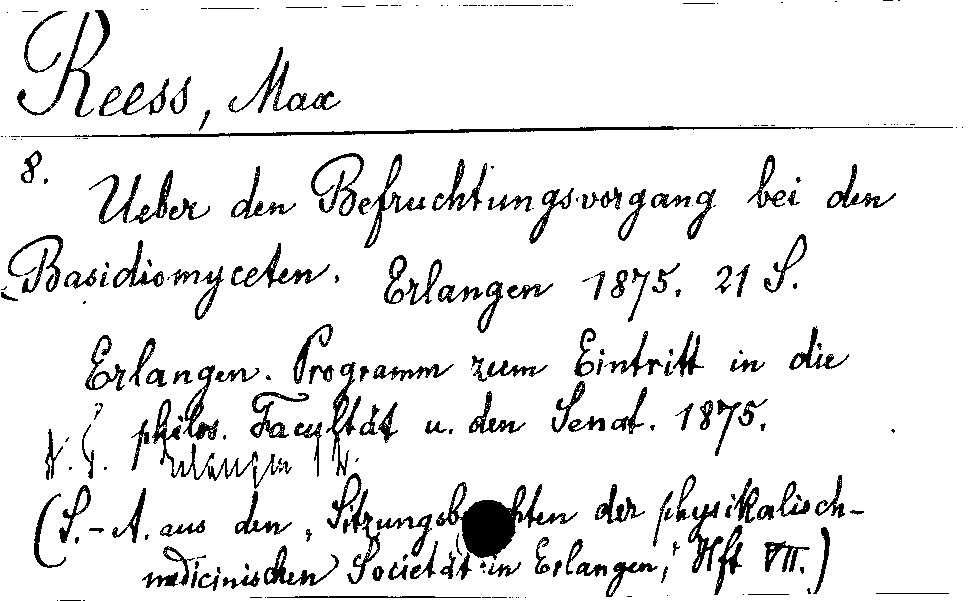 Reess, Max
8.
Ueber den Befruchtungsvorgang bei den
Basidiomyceten. Erlangen 1875. 21 S.
Erlangen. Programm zum Eintritt in die
philos. Facultät u. den Senat. 1875.
Erlangen
(S.-A. aus den „Sitzungsberichten der physikalisch-
medicinischen Societät in Erlangen," Hft VII.)